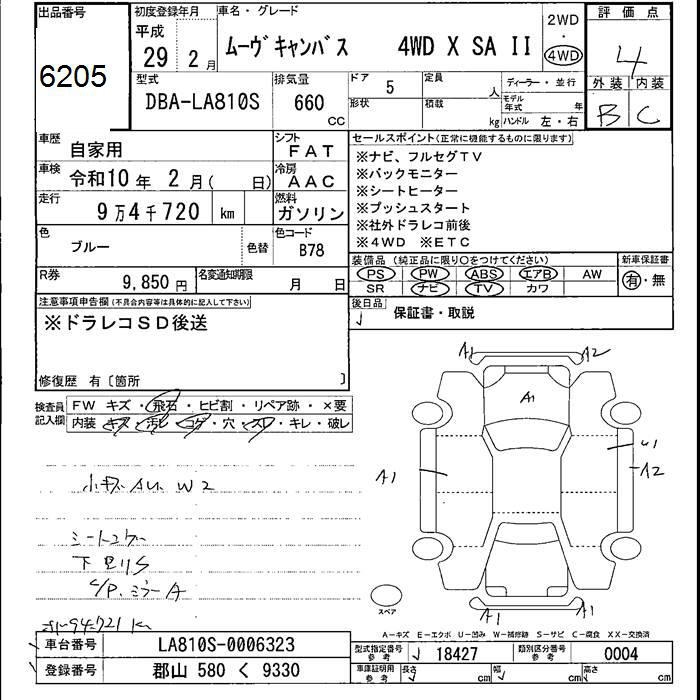 出品番号
6205
初度登録年月
平成
29 年 2 月
車名・グレード
ムーヴキャンバス 4WD X SA II
2WD
・
4WD
評価点
4
外装 内装
B C
型式
DBA-LA810S
排気量
660 CC
ドア 5
形状
定員 人
積載 kg
ディーラー・並行
モデル年式 年
ハンドル 左・右
車歴 自家用
シフト FAT
車検 令和10年 2月( 日)
冷房 AAC
走行 9万4千720 km
燃料 ガソリン
色 ブルー 色替
色コード B78
R券 9,850円
名変通知期限 月 日
セールスポイント(正常に機能するものに限ります)
※ナビ、フルセグTV
※バックモニター
※シートヒーター
※プッシュスタート
※社外ドラレコ前後
※4WD ※ETC
装備品(純正品に限り〇をつけてください)
PS PW ABS エアB AW
SR ナビ TV カワ
新車保証書
有・無
後日品
保証書・取説
注意事項申告欄(不具合内容等は具体的に記入して下さい)
※ドラレコSD後送
修復歴 有〔箇所 〕
検査員記入欄
FW キズ・飛石・ヒビ割・リペア跡・×要
内装 キズ・汚レ・コゲ・穴・スレ・キレ・破レ
A1 A2
A1
A1
U1
A2
W2
下廻りS
ミラーA
A1 A1
スペア
A-キズ E-エクボ U-凹み W-補修跡 S-サビ C-腐食 XX-交換済
車台番号 LA810S-0006323
登録番号 郡山 580 く 9330
型式指定番号 参考 18427
類別区分番号 参考 0004
車庫証明用 参考 長さ cm 幅 cm 高さ cm